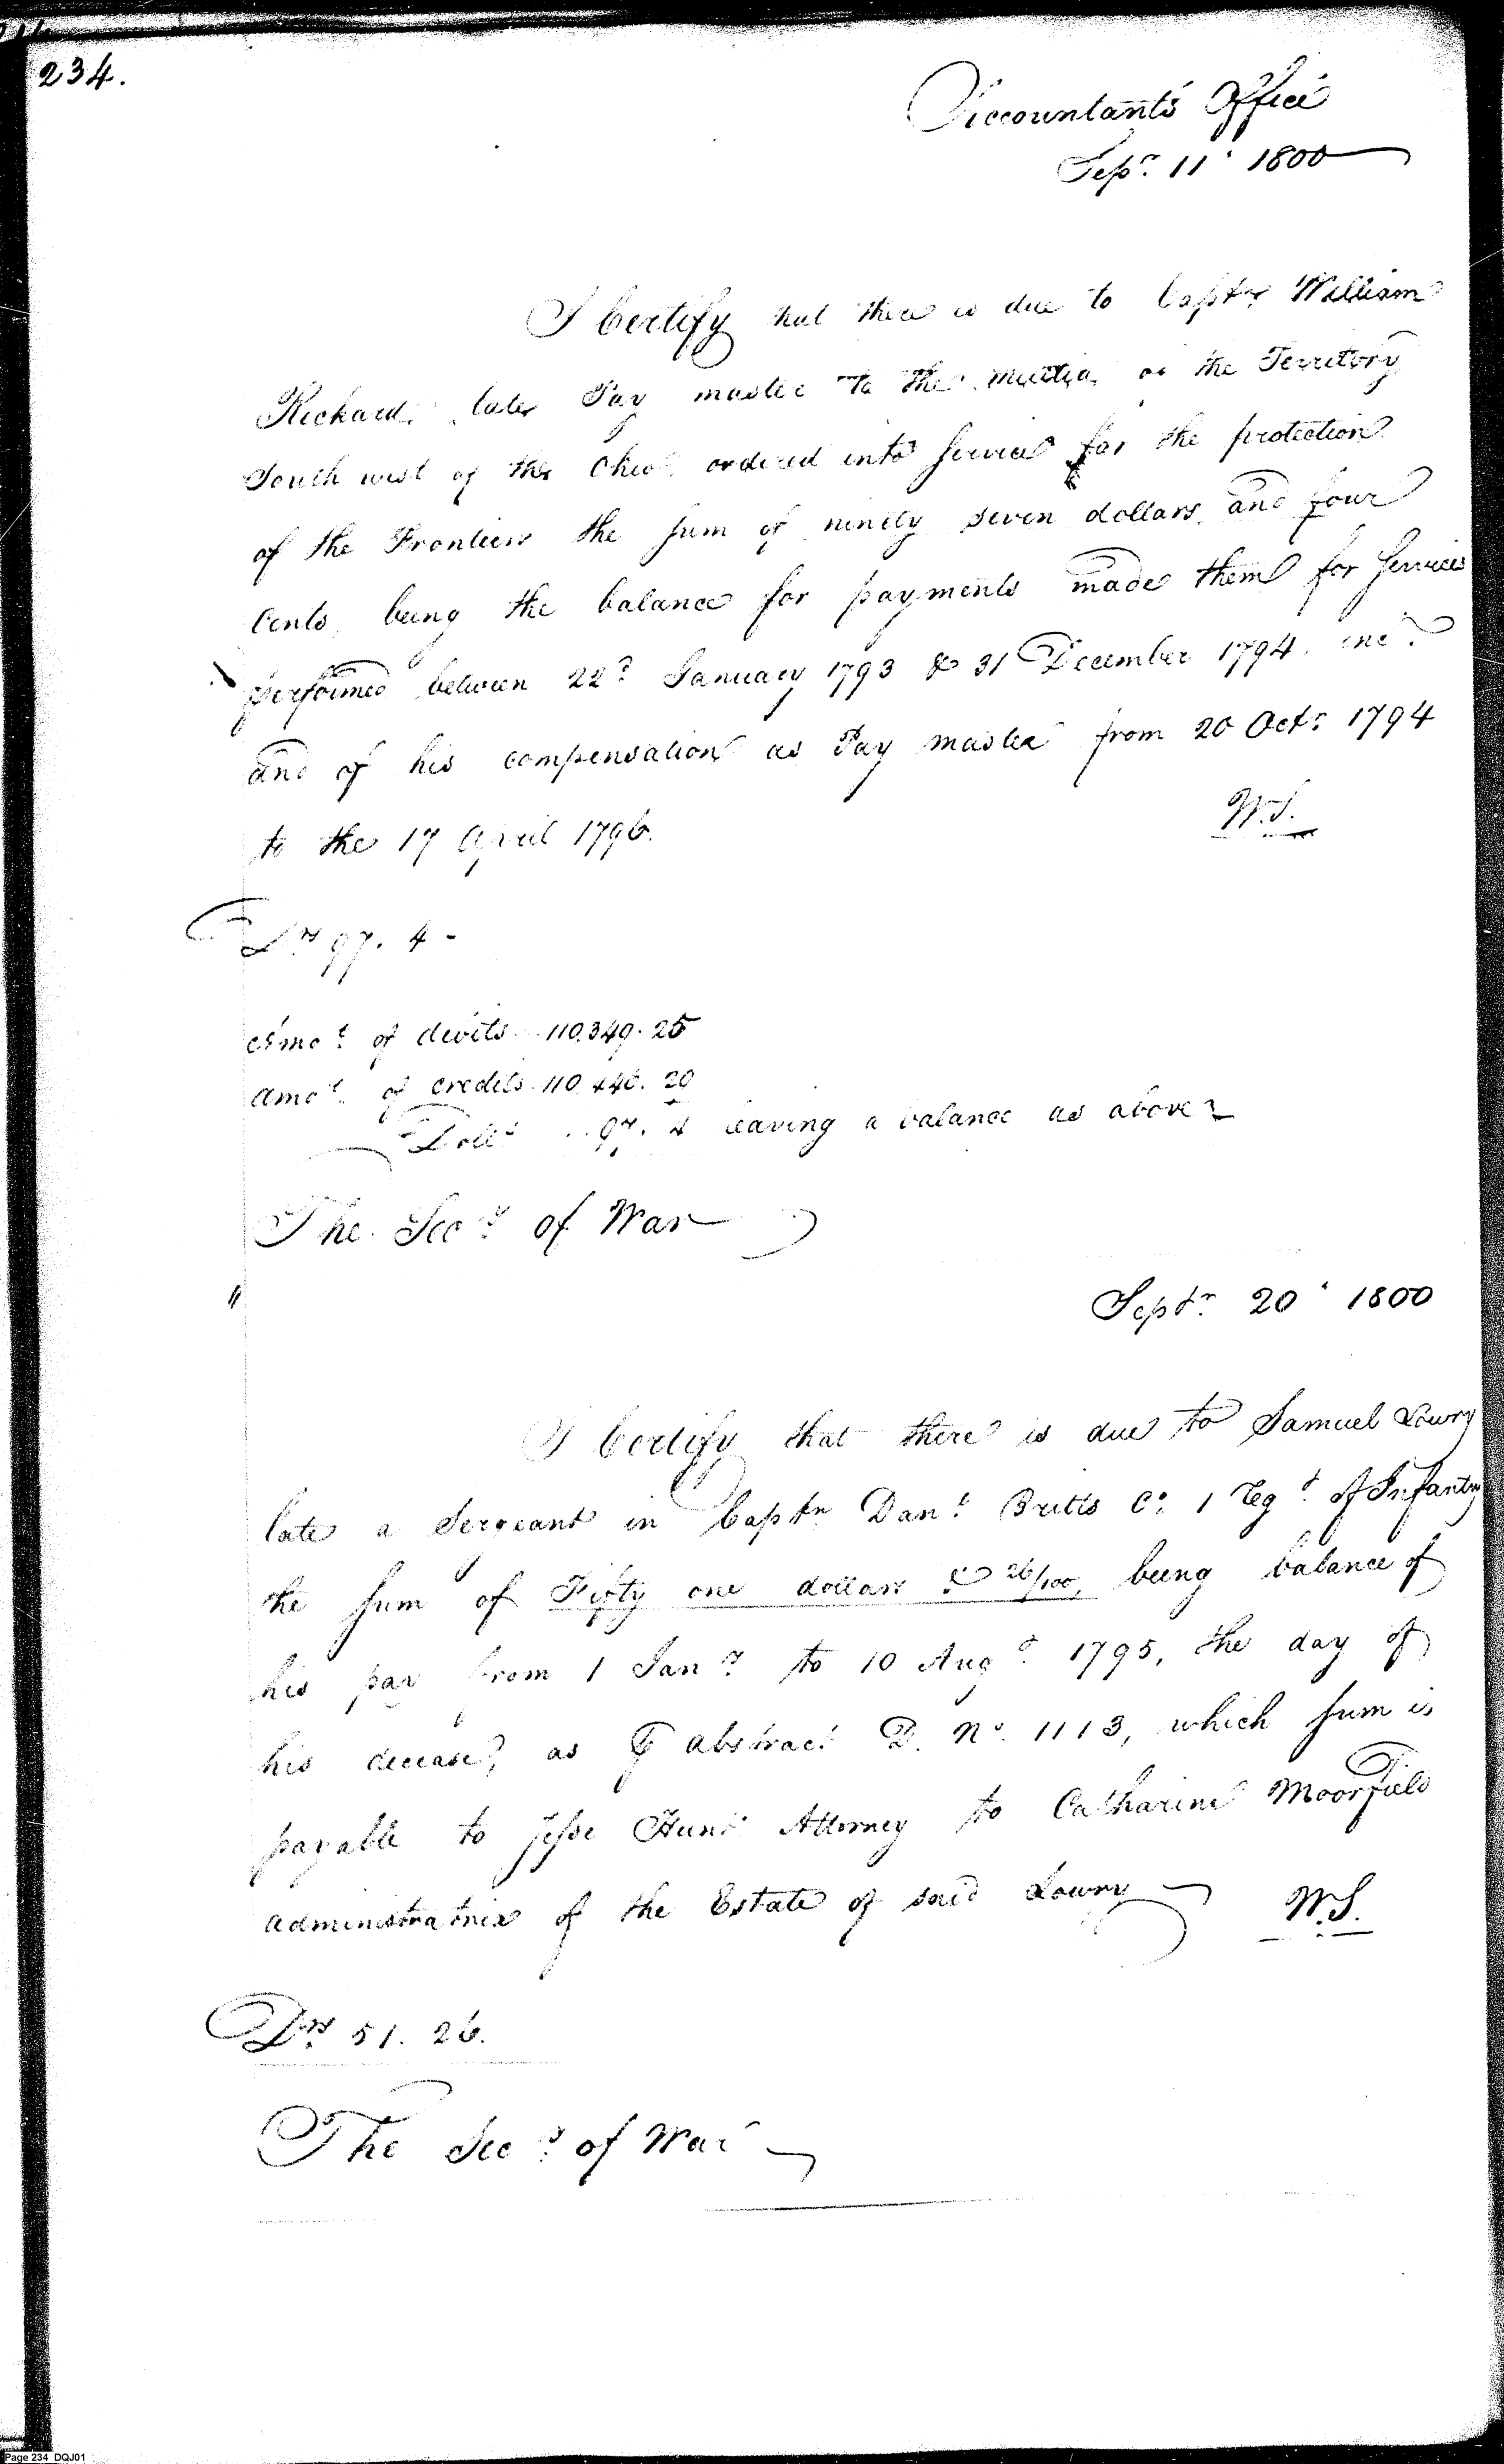 234.
Accountants Office
Sepr. 11. 1800
I Certify that there is due to Captn William
Rickard, late Pay master to the Militia of the Territory
South west of the Ohio ordered into Service for the protection
of the Frontiers the sum of ninety seven dollars and four
Cents, being the balance for payments made them for Services
performed between 22d January 1793 & 31 December 1794. inc.
and of his compensation as Pay master from 20 Octr 1794
to the 17 April 1796.
W.S.
Drs 97. 4 -
Amot of debits 110.349. 25
Amot of credits 110.446. 29
Dolls 97. 4 leaving a balance as above
The Secy of War
" Septr 20. 1800
I Certify that there is due to Samuel Lowry
late a Sergeant in Captn Danl Britts Co. 1 Regt of Infantry
the sum of Fifty one dollars & 26/100, being balance of
his pay from 1 Jany to 10 Augt 1795, the day of
his decease, as ⅌ abstract D. No. 1113, which sum is
payable to Jesse Hunt Attorney to Catharine Moorfield
administratrix of the Estate of said Lowry
W.S.
Drs 51. 26.
The Secy of War
Page 234 DQJ01